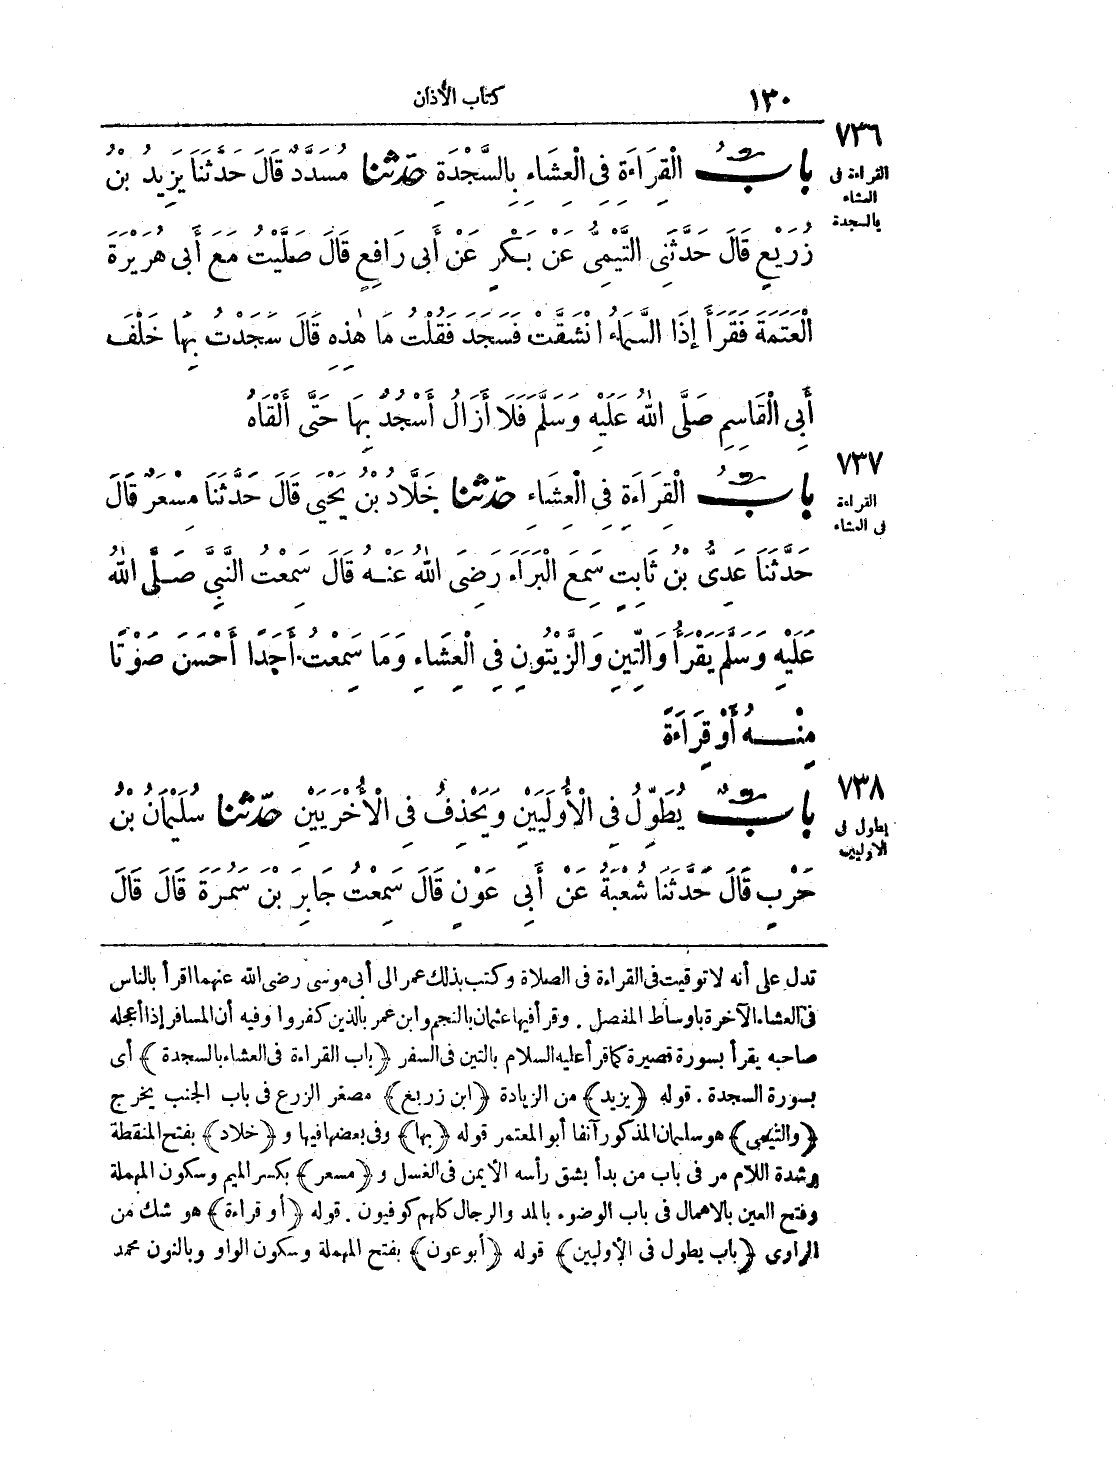 ١٣٠ كتاب الأذان
٧٣٦
القراءة فى
العشاء
بالسجدة
بابُ الْقِرَاءَةِ فِى الْعِشَاءِ بِالسَّجْدَةِ حَدَّثَنَا مُسَدَّدٌ قَالَ حَدَّثَنَا يَزِيدُ بْنُ
زُرَيْعٍ قَالَ حَدَّثَنِى التَّيْمِىُّ عَنْ بَكْرٍ عَنْ أَبِى رَافِعٍ قَالَ صَلَّيْتُ مَعَ أَبِى هُرَيْرَةَ
الْعَتَمَةَ فَقَرَأَ إِذَا السَّمَاءُ انْشَقَّتْ فَسَجَدَ فَقُلْتُ مَا هٰذِهِ قَالَ سَجَدْتُ بِهَا خَلْفَ
أَبِى الْقَاسِمِ صَلَّى اللهُ عَلَيْهِ وَسَلَّمَ فَلَا أَزَالُ أَسْجُدُ بِهَا حَتَّى أَلْقَاهُ
٧٣٧
القراءة
فى العشاء
بابُ الْقِرَاءَةِ فِى الْعِشَاءِ حَدَّثَنَا خَلَّادُ بْنُ يَحْيَى قَالَ حَدَّثَنَا مِسْعَرٌ قَالَ
حَدَّثَنَا عَدِىُّ بْنُ ثَابِتٍ سَمِعَ الْبَرَاءَ رَضِىَ اللهُ عَنْهُ قَالَ سَمِعْتُ النَّبِىَّ صَلَّى اللهُ
عَلَيْهِ وَسَلَّمَ يَقْرَأُ وَالتِّينِ وَالزَّيْتُونِ فِى الْعِشَاءِ وَمَا سَمِعْتُ أَحَدًا أَحْسَنَ صَوْتًا
مِنْهُ أَوْ قِرَاءَةً
٧٣٨
يطول فى
الاوليين
بابٌ يُطَوِّلُ فِى الْأُولَيَيْنِ وَيَحْذِفُ فِى الْأُخْرَيَيْنِ حَدَّثَنَا سُلَيْمَانُ بْنُ
حَرْبٍ قَالَ حَدَّثَنَا شُعْبَةُ عَنْ أَبِى عَوْنٍ قَالَ سَمِعْتُ جَابِرَ بْنَ سَمُرَةَ قَالَ قَالَ
تدل على أنه لا توقيت فى القراءة فى الصلاة وكتب بذلك عمر الى أبى موسى رضى الله عنهما اقرأ بالناس
فى العشاء الآخرة باوساط المفصل . وقرأ فيها عثمان بالنجم وابن عمر بالذين كفروا وفيه أن المسافر إذا أعجله
صاحبه يقرأ بسورة قصيرة كما قرأ عليه السلام بالتين فى السفر ﴿باب القراءة فى العشاء بالسجدة﴾ أى
بسورة السجدة . قوله ﴿يزيد﴾ من الزيادة ﴿ابن زريع﴾ مصغر الزرع فى باب الجنب يخرج
﴿والتيمى﴾ هو سليمان المذكور آنفا أبو المعتمر قوله ﴿بها﴾ وفى بعضها فيها و ﴿خلاد﴾ بفتح المنقطة
وشدة اللام مر فى باب من بدأ بشق رأسه الأيمن فى الغسل و ﴿مسعر﴾ بكسر الميم وسكون المهملة
وفتح العين بالاهمال فى باب الوضوء بالمد والرجال كلهم كوفيون . قوله ﴿أو قراءة﴾ هو شك من
الراوى ﴿باب يطول فى الأوليين﴾ قوله ﴿أبو عون﴾ بفتح المهملة وسكون الواو وبالنون محمد